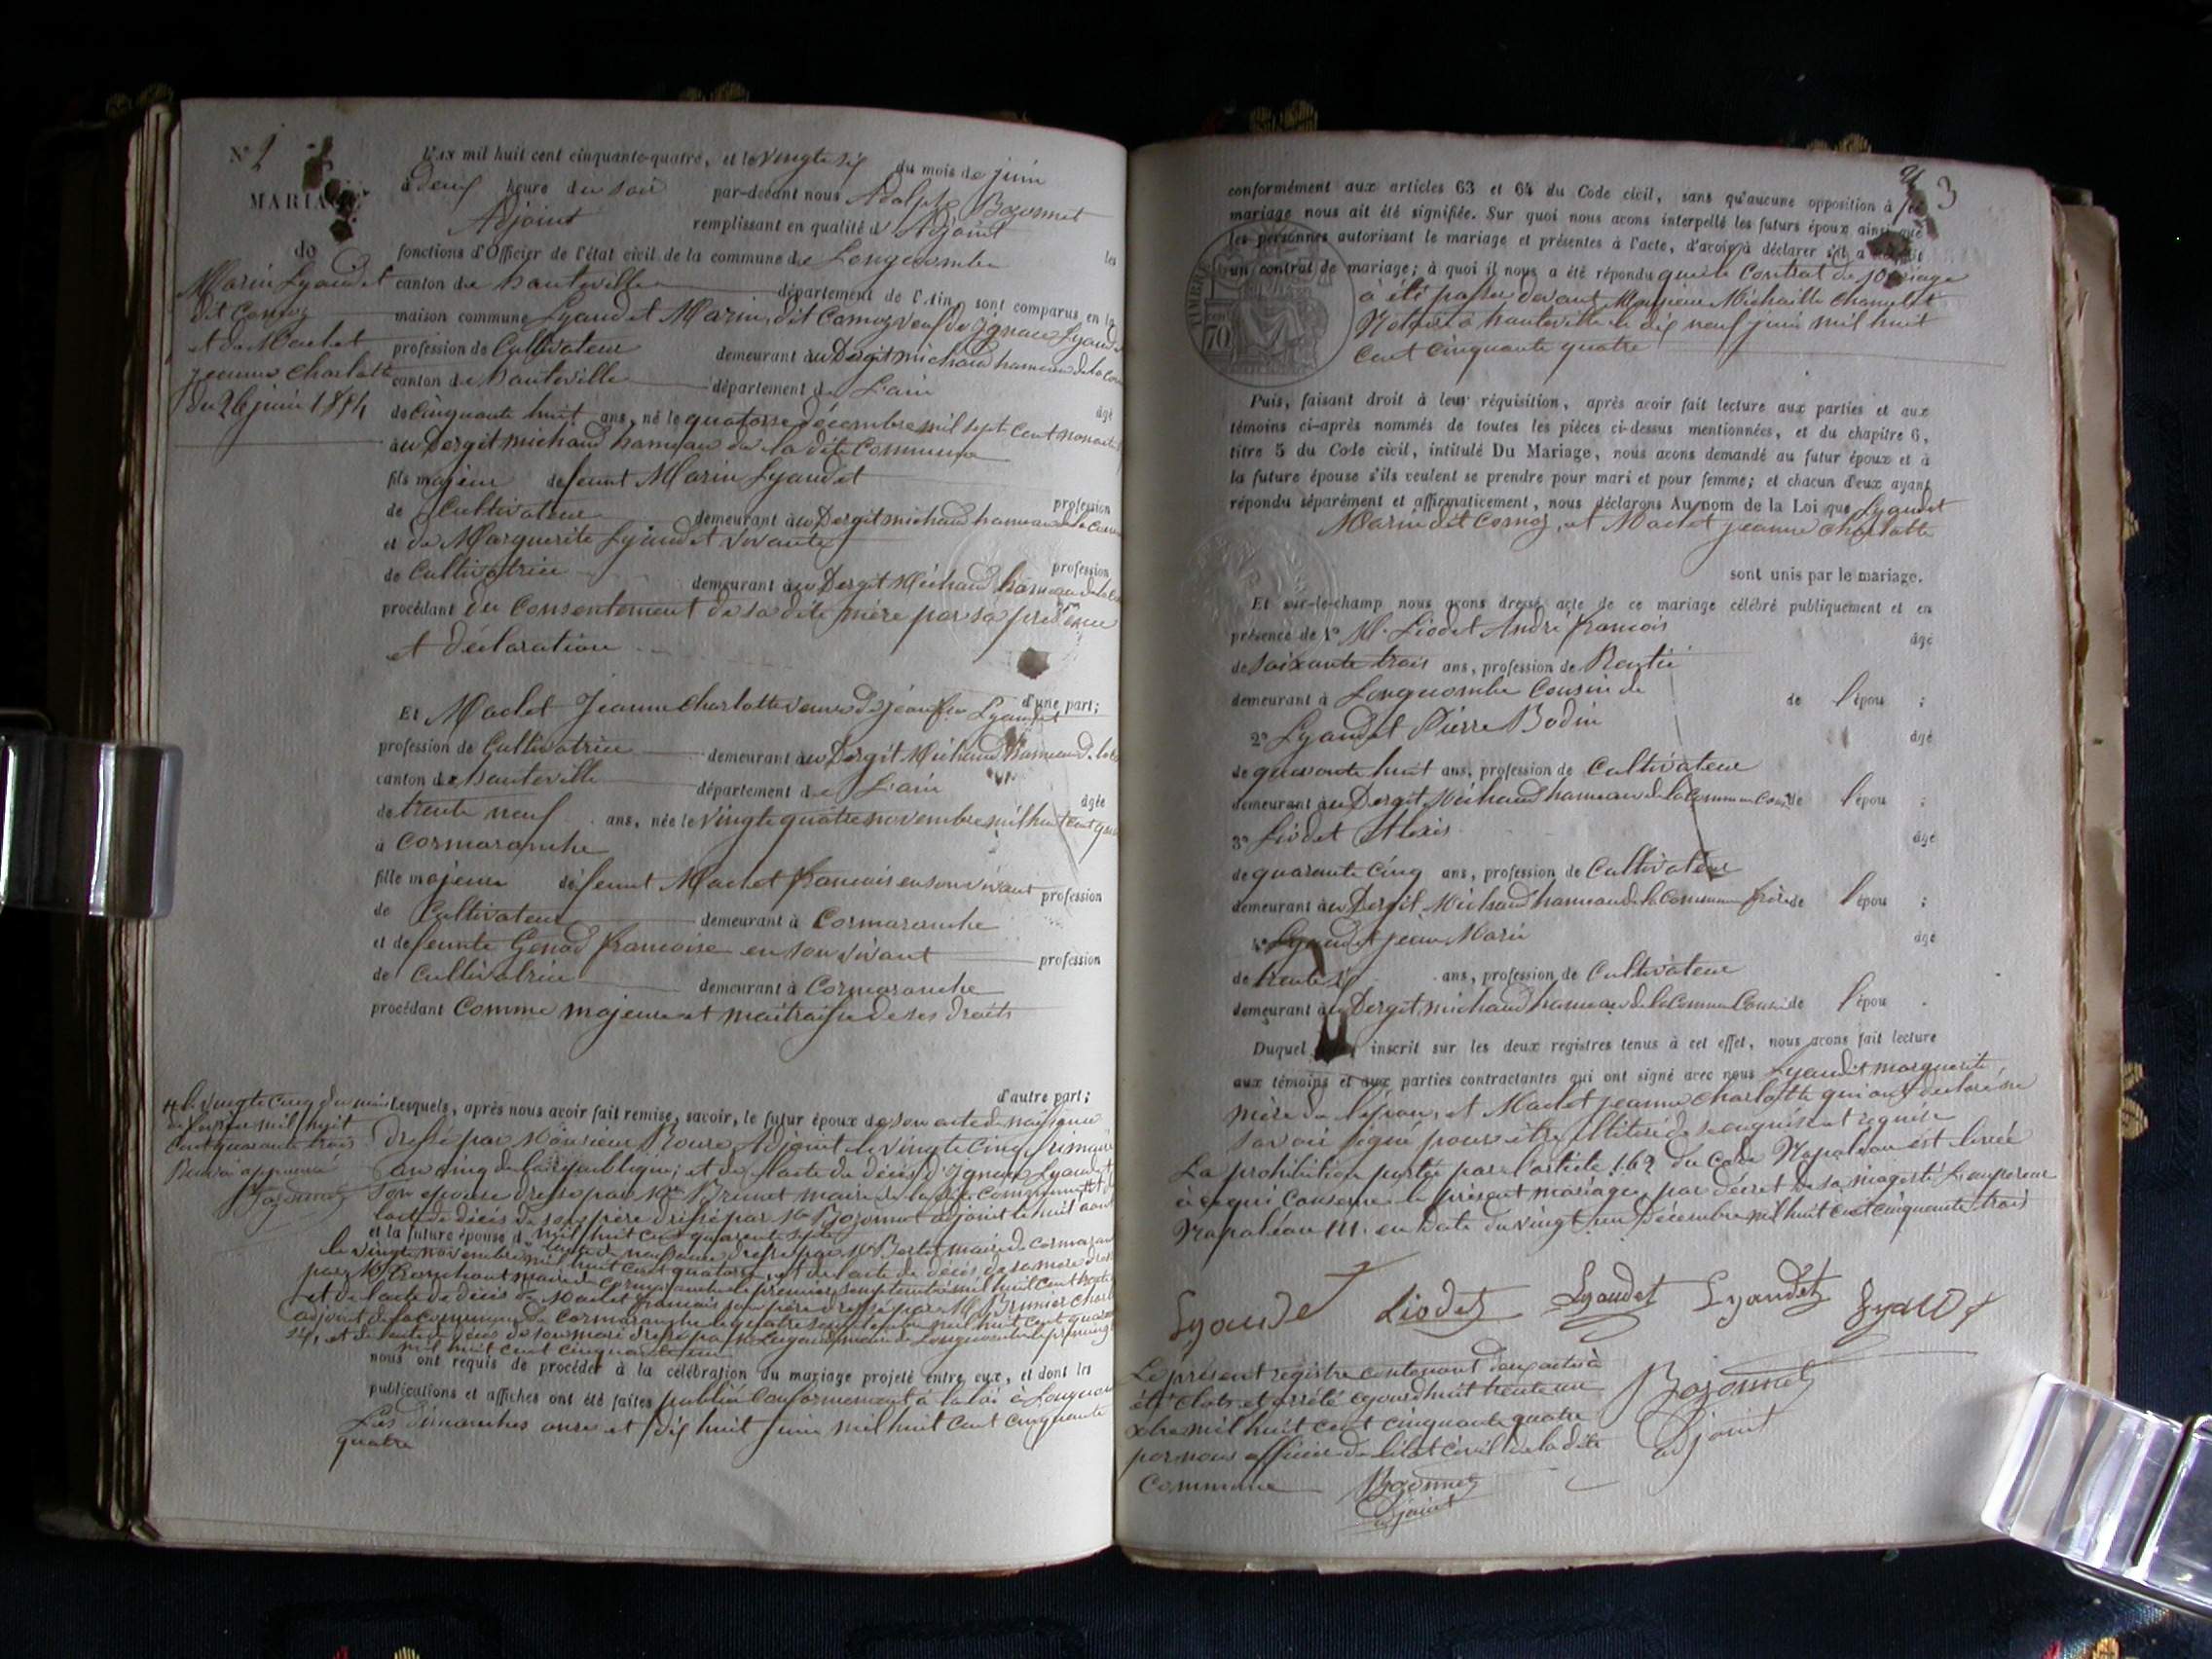 N° 2
MARIAGE
de
Marin Lyaudet
dit Comoz
et de Maclet
jeanne Charlotte
du 26 juin 1854
L'an mil huit cent cinquante-quatre, et le vingte six du mois de juin
à deux heure du soir par-devant nous Adolphe Bozonnet
Adjoint remplissant en qualité d'Adjoint les
fonctions d'Officier de l'état civil de la commune de Longecombe
canton de hauteville département de l'Ain, sont comparus en la
maison commune Lyaudet Marin, dit Comoz veuf de Ignace Lyaudet
profession de Cultivateur demeurant au Dergit michaud hameau de la
canton de hauteville département de L'ain âgé
de Cinquante huit ans, né le quatorse décembre mil sept cent
au Dergit michaud hameau de la dite Commune
fils majeur de feunt Marin Lyaudet
profession
de Cultivateur demeurant au Dergit michaud hameau de la
et de Marguerite Lyaudet vivante
profession
de Cultivatrice demeurant au Dergit Michaud hameau de la
procédant du Consentement de sa dite mère par sa présence
et déclaration
d'une part;
Et Maclet Jeanne Charlotte veuve de jean Lyaudet
profession de Cultivatrice demeurant au Dergit Michaud hameau de la
canton de hauteville département de L'ain âgée
de trente neuf ans, née le vingte quatre novembre mil huit cent
à Cormaranche
fille majeure de feunt Maclet francois en son vivant profession
de Cultivateur demeurant à Cormaranche
et de feunte Genod francoise en son vivant profession
de Cultivatrice demeurant à Cormaranche
procédant Comme majeure et maitraisse de ses droits
d'autre part;
le vingte cinq du mois
mil huit
Cent quarante trois
Renvoi approuvé
Bozonnet
Lesquels, après nous avoir fait remise, savoir, le futur époux de son acte de naissance
dressé par Monsieur Roure Adjoint le vingte cinq frimaire
an cinq de la république; et de l'acte de décès d'Ignace Lyaudet
son epouse dressé par Mr Brunet maire de la dite Commune
l'acte de décès de son père dressé par Mr Bozonnet adjoint le huit aout
mil huit cent quarante sept
et la future épouse d l'acte de naissance dressé par Mr Bertet maire de Cormaranche
le vingte novembre mil huit cent quatorze, et de l'acte de décès de sa mère dressé
par Mr maire de Cormaranche le premier septembre mil huit cent trente
et de l'acte de décès de Maclet francois son père dressé par Mr Brunier
adjoint de la commune de Cormaranche le quatre septembre mil huit cent quarante
six, et de l'acte de décès de son mari dressé par maire de Longecombe le
mil huit cent cinquante un
nous ont requis de procéder à la célébration du mariage projeté entre eux, et dont les
publications et affiches ont été faites publié Conformement à la loi à Longecombe
Les dimanches onse et dix huit juin mil huit Cent cinquante
quatre
3
conformément aux articles 63 et 64 du Code civil, sans qu'aucune opposition à ce
mariage nous ait été signifiée. Sur quoi nous avons interpellé les futurs époux ainsi que
les personnes autorisant le mariage et présentes à l'acte, d'avoir à déclarer s'il a été fait
un contrat de mariage; à quoi il nous a été répondu que le Contrat de mariage
à été passer devant Monsieur Michaille Chamelet
Notaire à hauteville le dix neuf juin mil huit
cent Cinquante quatre
TIMBRE
70
Puis, faisant droit à leur réquisition, après avoir fait lecture aux parties et aux
témoins ci-après nommés de toutes les pièces ci-dessus mentionnées, et du chapitre 6,
titre 5 du Code civil, intitulé Du Mariage, nous avons demandé au futur époux et à
la future épouse s'ils veulent se prendre pour mari et pour femme; et chacun d'eux ayant
répondu séparément et affirmativement, nous déclarons Au nom de la Loi que Lyaudet
Marin dit Comoz, et Maclet jeanne Charlotte
sont unis par le mariage.
Et sur-le-champ nous avons dressé acte de ce mariage célébré publiquement et en
présence de 1° M. Liodet André francois âgé
de Soixante trois ans, profession de Rentié
demeurant à Longecombe Cousin de de l'épou ;
2° Lyaudet Pierre Bodin âgé
de quarante huit ans, profession de Cultivateur
demeurant au Dergit Michaud hameau de la Commune de l'épou ;
3° Liodet Alexis âgé
de quarante Cinq ans, profession de Cultivateur
demeurant au Dergit Michaud hameau de la Commune frère de l'épou ;
4° Lyaudet jean Marie âgé
de trente six ans, profession de Cultivateur
demeurant au Dergit michaud hameau de la Commune Cousin de l'épou .
Duquel inscrit sur les deux registres tenus à cet effet, nous avons fait lecture
aux témoins et aux parties contractantes qui ont signé avec nous Lyaudet marguerite
mère de l'épou, et Maclet jeanne Charlotte qui ont declaré ne
savoir signé pour être illitéré de ce enquis et requise
La prohibition portée par l'article 162 du Code Napoléon est levée
à ce qui Conserne le présent mariage, par décret de sa majesté L'empereur
Napoléon III. en date du vingt un décembre mil huit cent cinquante trois
Lyaudet Liodet Lyaudet Lyaudet Lyaudet
Le présent registre contenant deux actes à
été clots et arrêté ojourdhuit trente un
xbre mil huit cent cinquante quatre
par nous officier de l'état civil de la dite
Commune Bozonnet
adjoint
Bozonnet
adjoint